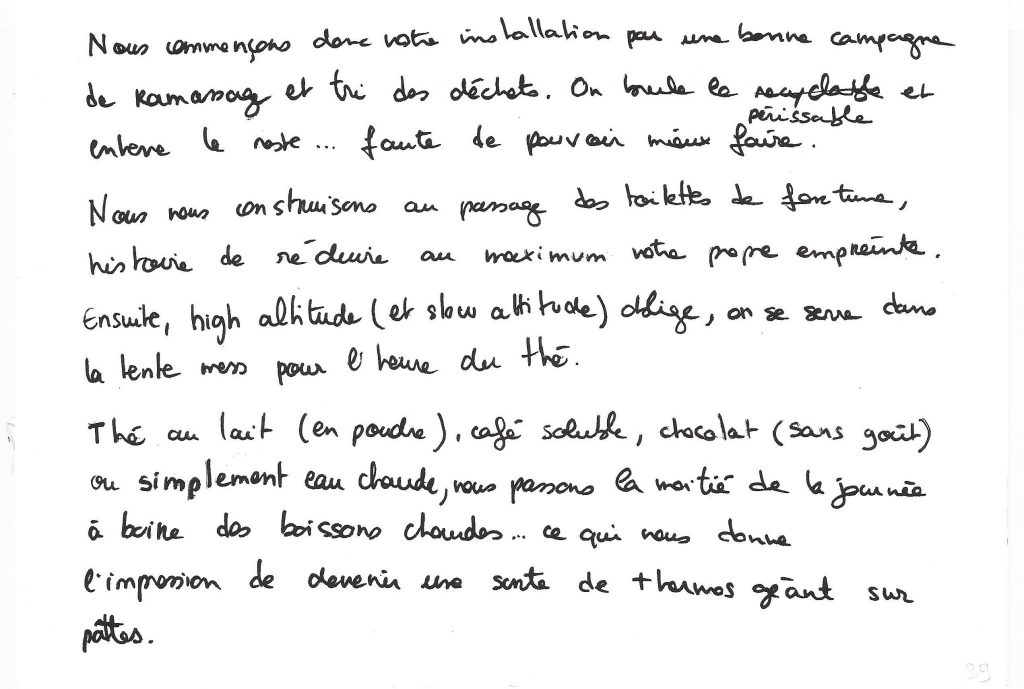 Nous commençons donc notre installation par une bonne campagne
de ramassage et tri des déchets. On brule le recyclable et
périssable
enterre le reste... faute de pouvoir mieux faire.
Nous nous construisons au passage des toilettes de fortune,
histoire de réduire au maximum notre propre empreinte.
Ensuite, high altitude (et slow attitude) oblige, on se serre dans
la tente mess pour l'heure du thé.
Thé au lait (en poudre), café soluble, chocolat (sans goût)
ou simplement eau chaude, nous passons la moitié de la journée
à boire des boissons chaudes... ce qui nous donne
l'impression de devenir une sorte de thermos géant sur
pâttes.
39